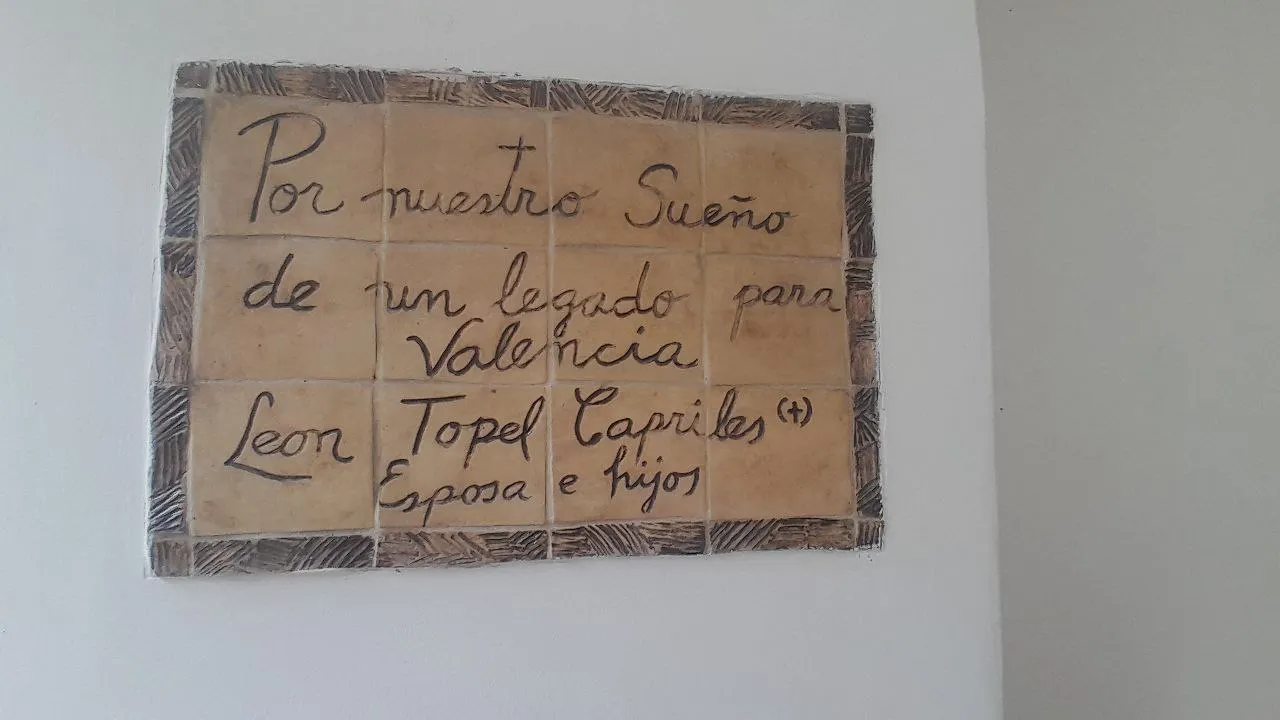 Por nuestro Sueño
de un legado para
Valencia
Leon Topel Capriles (+)
Esposa e hijos